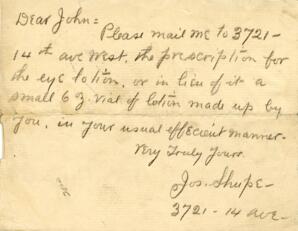 Dear John =
Please mail me to 3721 -
14th ave West, the prescription for
the eye lotion, or in lieu of it a
small 6 z vial of lotion made up by
you, in your usual effecient manner -
Very Truly Yours
Jos. Shupe -
3721 - 14 ave -